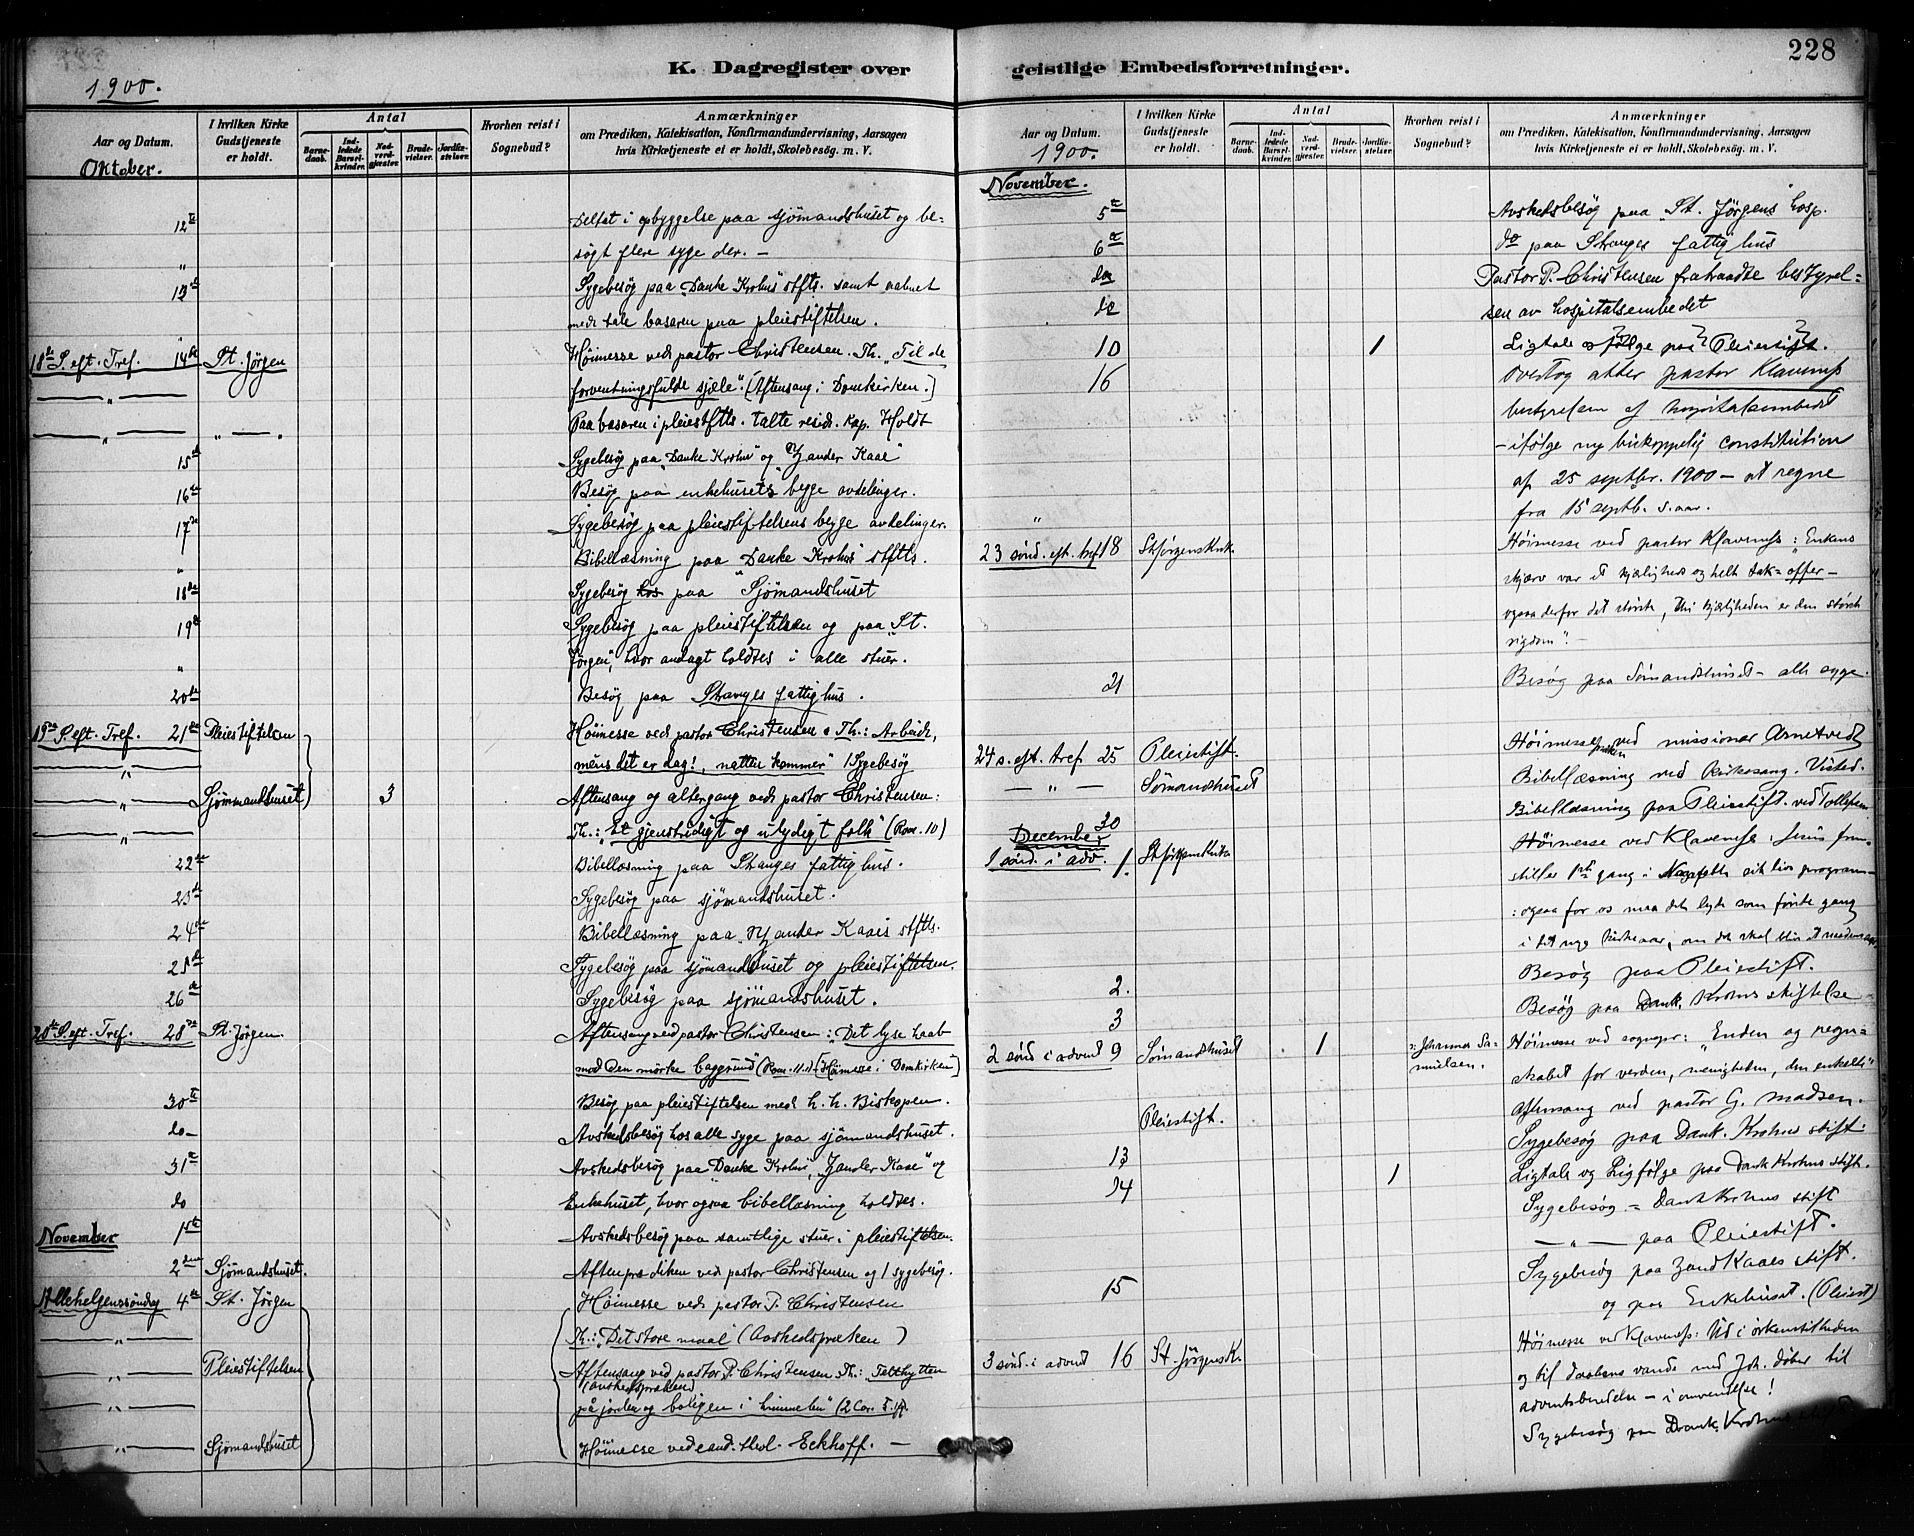 228
K. Dagregister over geistlige Embedsforretninger.
1900.
Aar og Datum.
I hvilken Kirke Gudstjeneste er holdt.
Antal
Barnedaab.
Indledede Barselkvinder.
Nadverdgjester.
Brudevielser.
Jordfæstelser.
Hvorhen reist i Sognebud?
Anmærkninger
om Prædiken, Katekisation, Konfirmandundervisning, Aarsagen
hvis Kirketjeneste ei er holdt, Skolebesøg. m. V.
Oktober.
12te Deltat i opbyggelse paa sjømandshuset og be-
" søgt flere syge der. —
13de Sygebesøg paa "Danke Krohns stfts. samt aabnet
med tale basaren paa pleiestiftelsen.
18de S. eft. Tref. 14de St. Jørgen Høimesse ved pastor Christensen. Th. "Til de
— " — forventningsfulde sjæle". (Aftensang i Domkirken.)
— " — " — Paa basaren i pleiestftls. talte resid. kap. Holdt
15de Sygebesøg paa "Danke Krohn" og "Zander Kaae"
16de Besøg paa enkehusets begge avdelinger.
17de Sygebesøg paa pleiestiftelsens begge avdelinger.
" Bibellæsning paa Danke Krohns stftls.
18de Sygebesøg hos paa "Sjømandshuset
19de Sygebesøg paa pleiestiftelsen og paa "St.
" Jørgen", hvor andagt holdtes i alle stuer.
20de Besøg paa Stranges fattighus.
19de S. eft. Tref. 21de Pleiestiftelsen Høimesse ved pastor Christensen. Th.: Arbeide,
— " — mens det er dag!, natten kommer" 1 Sygebesøg
— " — Sjømmandshuset 3 Aftensang og altergang ved pastor Christensen:
— " — Th.: "Et gjenstridigt og ulydigt folk" (Rom. 10)
22de Bibellæsning paa Stranges fattighus.
23de Sygebesøg paa sjømandshuset.
24de Bibellæsning paa "Zander Kaaes stftls.
25de Sygebesøg paa sjømandshuset og pleiestiftelsen.
26de Sygebesøg paa sjømandshuset.
20de S. eft. Tref. 28de St. Jørgen. Aftensang ved pastor Christensen: "Det lyse haab
mod den mørke baggrund (Rom. 11.) [Høimesse i Domkirken]
30te Besøg paa pleiestiftelsen med h. h. Biskopen.
do — Avskedsbesøg hos alle syge paa sjømandshuset.
31te Avskedsbesøg paa "Danke Krohn", "Zander Kaae" og
do Enkehuset, hvor ogsaa bibellæsning holdtes.
November 1ste Avskedsbesøg paa samtlige stuer i pleiestiftelsen.
2den Sjømandshuset. Aftenprædiken ved pastor Christensen og 1 sygebesøg.
Allehelgenssøndag 4de St. Jørgen Høimesse ved pastor P. Christensen
— " — Th.: Det store maal (Avskedspræken)
— " — Pleiestiftelsen Aftensang ved pastor P. Christensen. Th.: Telthytten
(avskedspræken)
— " — på jorden og boligen i himmelen" (2 Cor. 5.
— " — Sjømandshuset Høimesse ved cand. theol. Eckhoff. —
Aar og Datum.
1900.
I hvilken Kirke Gudstjeneste er holdt.
Antal
Barnedaab.
Indledede Barselkvinder.
Nadverdgjester.
Brudevielser.
Jordfæstelser.
Hvorhen reist i Sognebud?
Anmærkninger
om Prædiken, Katekisation, Konfirmandundervisning, Aarsagen
hvis Kirketjeneste ei er holdt, Skolebesøg. m. V.
November.
5te Avskedsbesøg paa "St. Jørgens hosp.
6te do paa Stranges fattighus
do Pastor P. Christensen fratraadte bestyrel-
do sen av hospitalsembedet
10 1 Ligtale følge paa Pleiestift.
16 Overtog atter pastor Klaveness
bestyrelsen af hospitalsembedet
— ifølge ny biskoppelig constitution
af 25 septbr. 1900 — at regne
fra 15 septb. s. aar.
23 sønd. eft. tref 18 St Jørgenskirk. Høimesse ved pastor Klaveness: "Enkens
skjærv var et kjærligheds og helt tak= offer —
ogsaa derfor det største, thi kjærligheden er den største
rigdom". —
21 Besøg paa Sømandshuset — alle syge.
24 s. eft. tref 25 Pleiestift. Høimesse ved missionær Arnetvedt
— " — Sømandshuset Bibellæsning ved
30 Bibellæsning paa Pleiestift. ved Tollefsen
December
1 sønd. i adv. 1. St Jørgenskirke Høimesse ved Klaveness: Jesus frem-
stiller 1ste gang i Nazareth sit livs program
: ogsaa for os maa det lyde som første gang
i det nye kirkeaar, om det skal blive et
2. Besøg paa Pleiestift.
3 Besøg paa Dank. Krohns stiftelse
2 sønd i advent 9 Sømandshuset 1 : Johannes Sa- Høimesse ved sognepr: "Enden og regn=
muelsen. skabet for verden, menigheden, den enkelte"
Pleiestift. Aftensang ved pastor G. Madsen.
13 Sygebesøg paa Dank. Krohns stift:
14 1 Ligtale og Ligfølge paa Dank Krohns stift.
Sygebesøg = Dank Krohns stift
— " — paa Pleiestift.
15 Sygebesøg paa Zand Kaaes stift.
og paa Enkehuset. (Pleiest)
3 sønd. i advent 16 St. Jørgensk. Høimesse ved Klaveness: Ud i ørkenstilheden
og til daabens vande med Joh. døber til
adventsbereelse — i omvendelse!
Sygebesøg paa Dank. Krohns